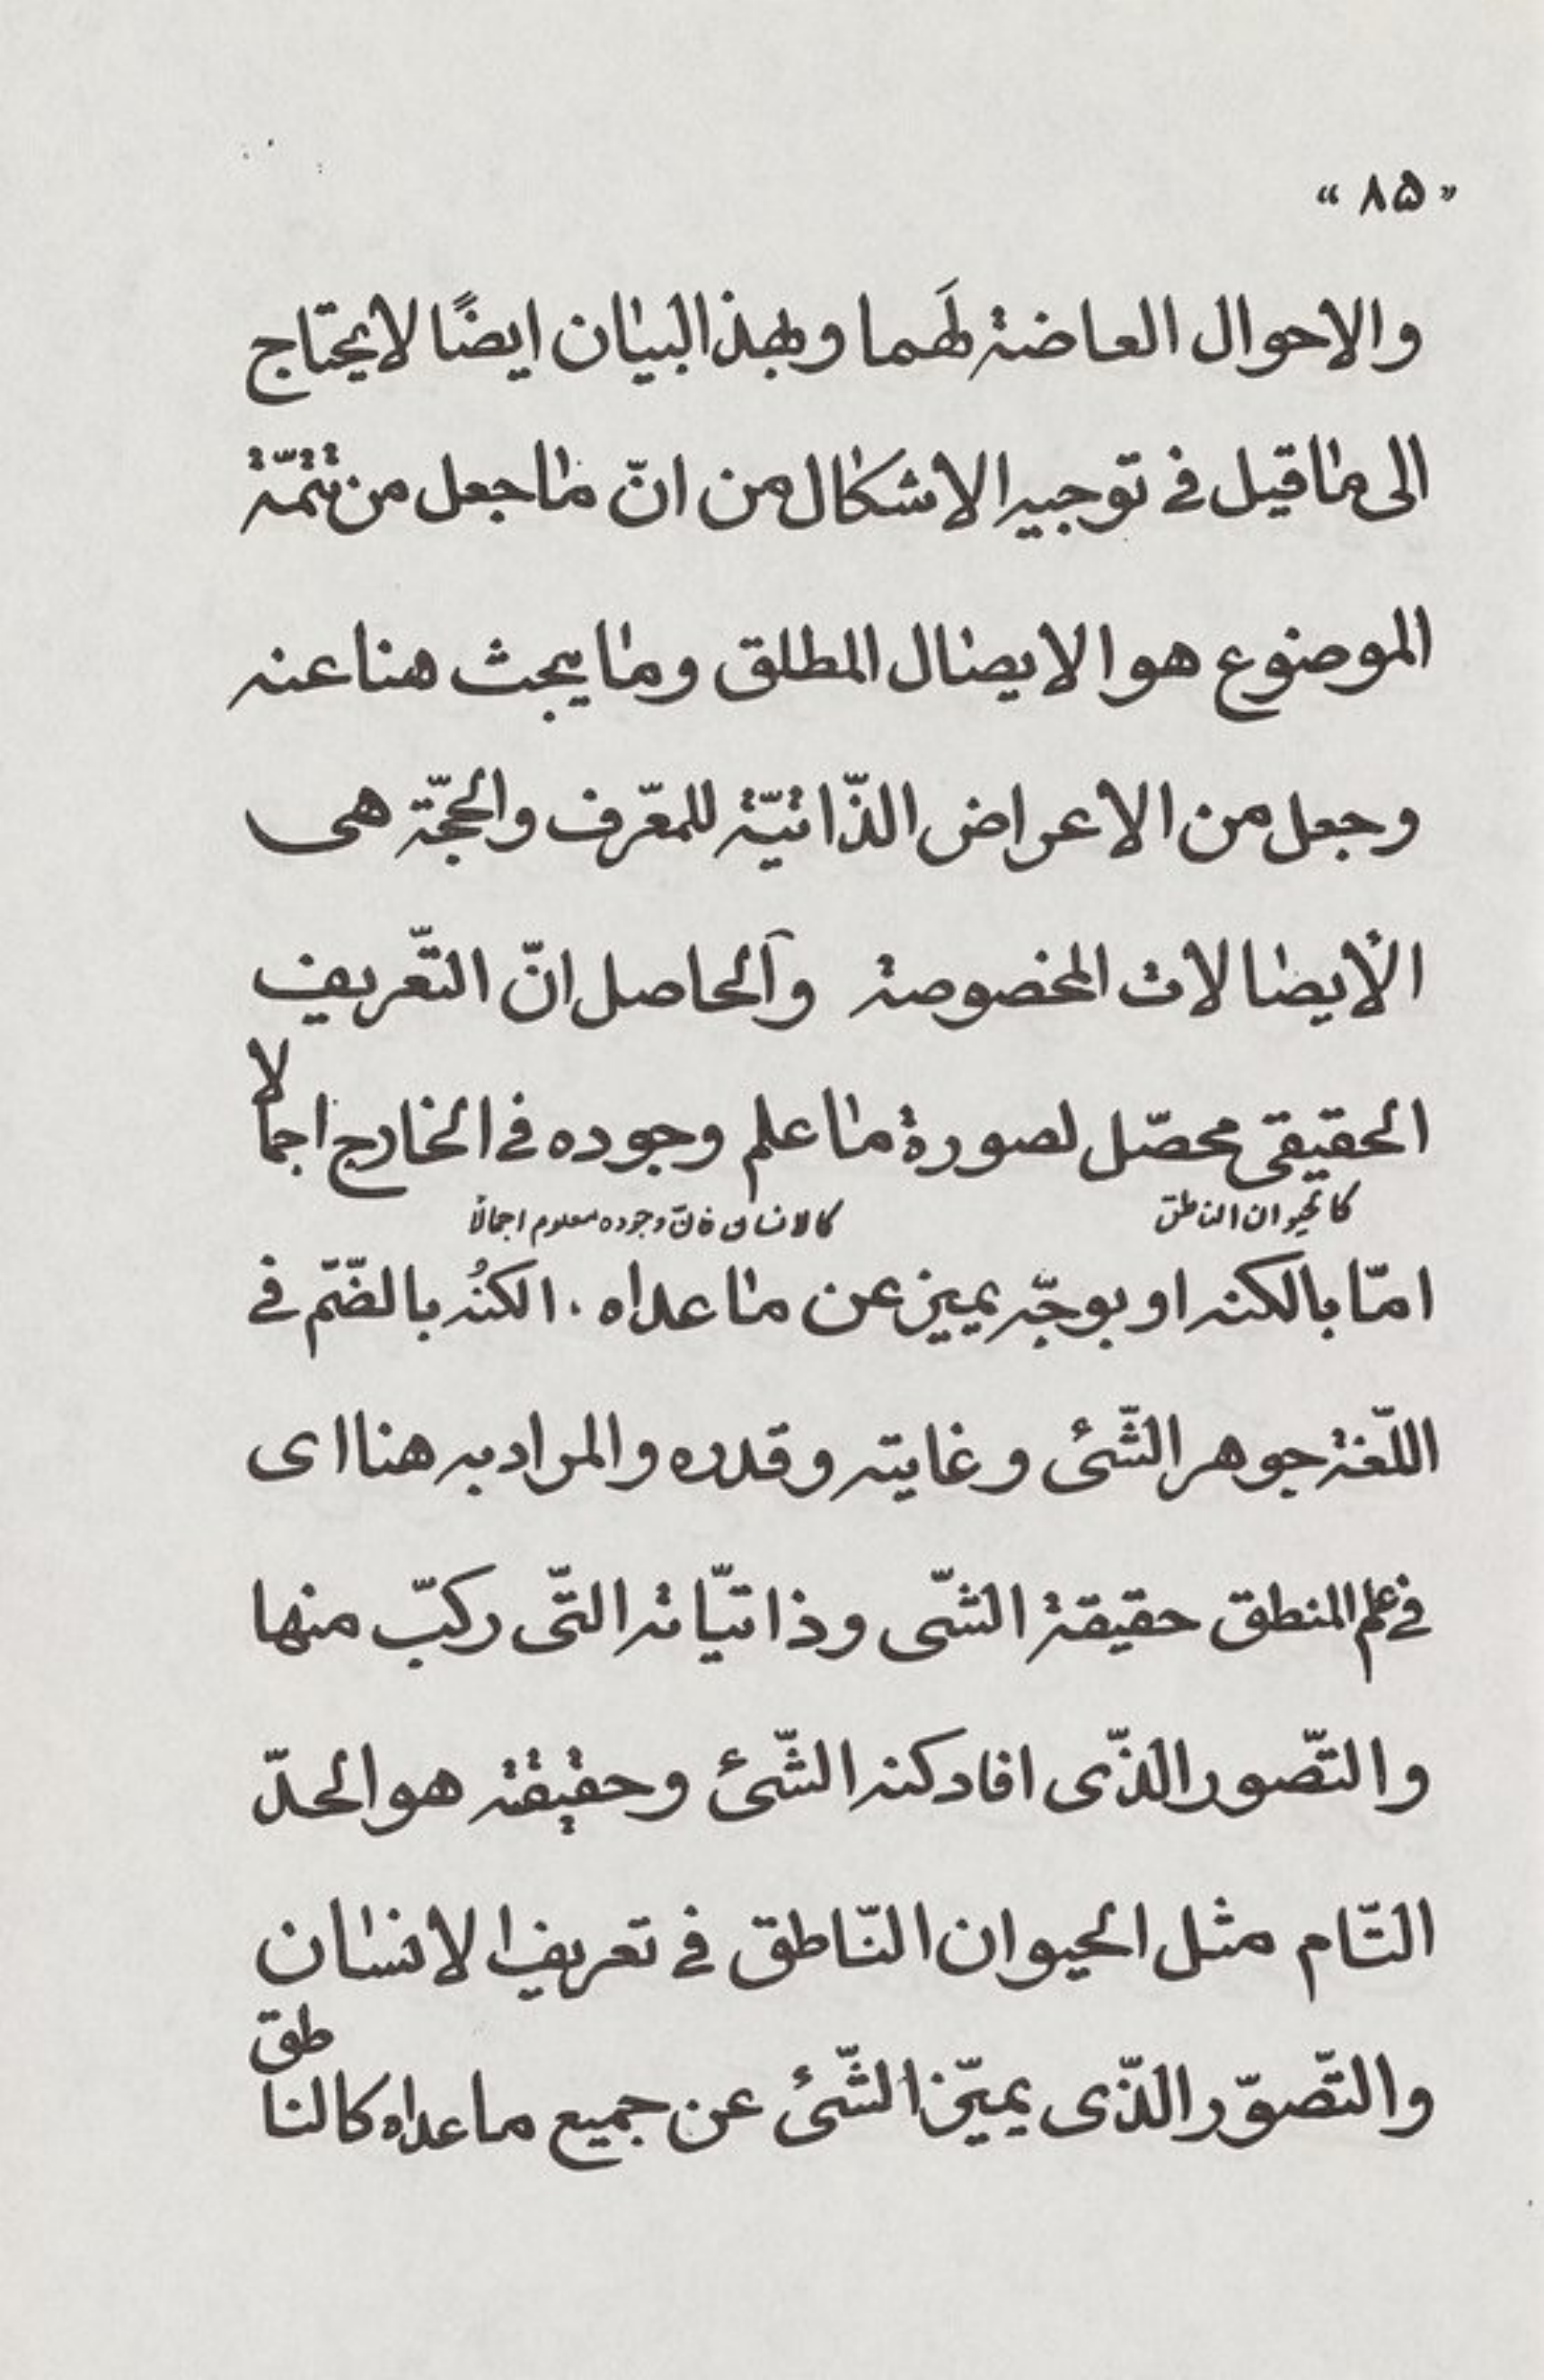 «۸۵»
والاحوال العاضة لَهما وبهذا البيان ايضًا لايحتاج
الى ماقيل فى توجيه الاشكال من انّ ماجعل من تتمّة
الموضوع هو الايصال المطلق ومايبحث هنا عنه
وجعل من الاعراض الذّاتيّة للمعّرف والحجّة هى
الأيصالات المخصوصة وآلحاصل انّ التّعريف
الحقيقى محصّل لصورة ماعلم وجوده فى الخارج اجمالا
كالحيوان الناطق كالانسان فانّ وجوده معلوم اجمالًا
امّا بالكنه او بوجّه يميز عن ماعداه . الكنُه بالضّمّ فى
اللّغة جوهر الشّئ وغايته وقدره والمراد به هنا اى
فى علم المنطق حقيقة الشّى وذاتيّاته التّى ركبّ منها
والتّصور الذّى افاد كنه الشّئ وحقيقة هو الحدّ
التّام مثل الحيوان النّاطق فى تعريف الانسان
والتّصوّر الذّى يميّز الشّئ عن جميع ماعداه كالناطق